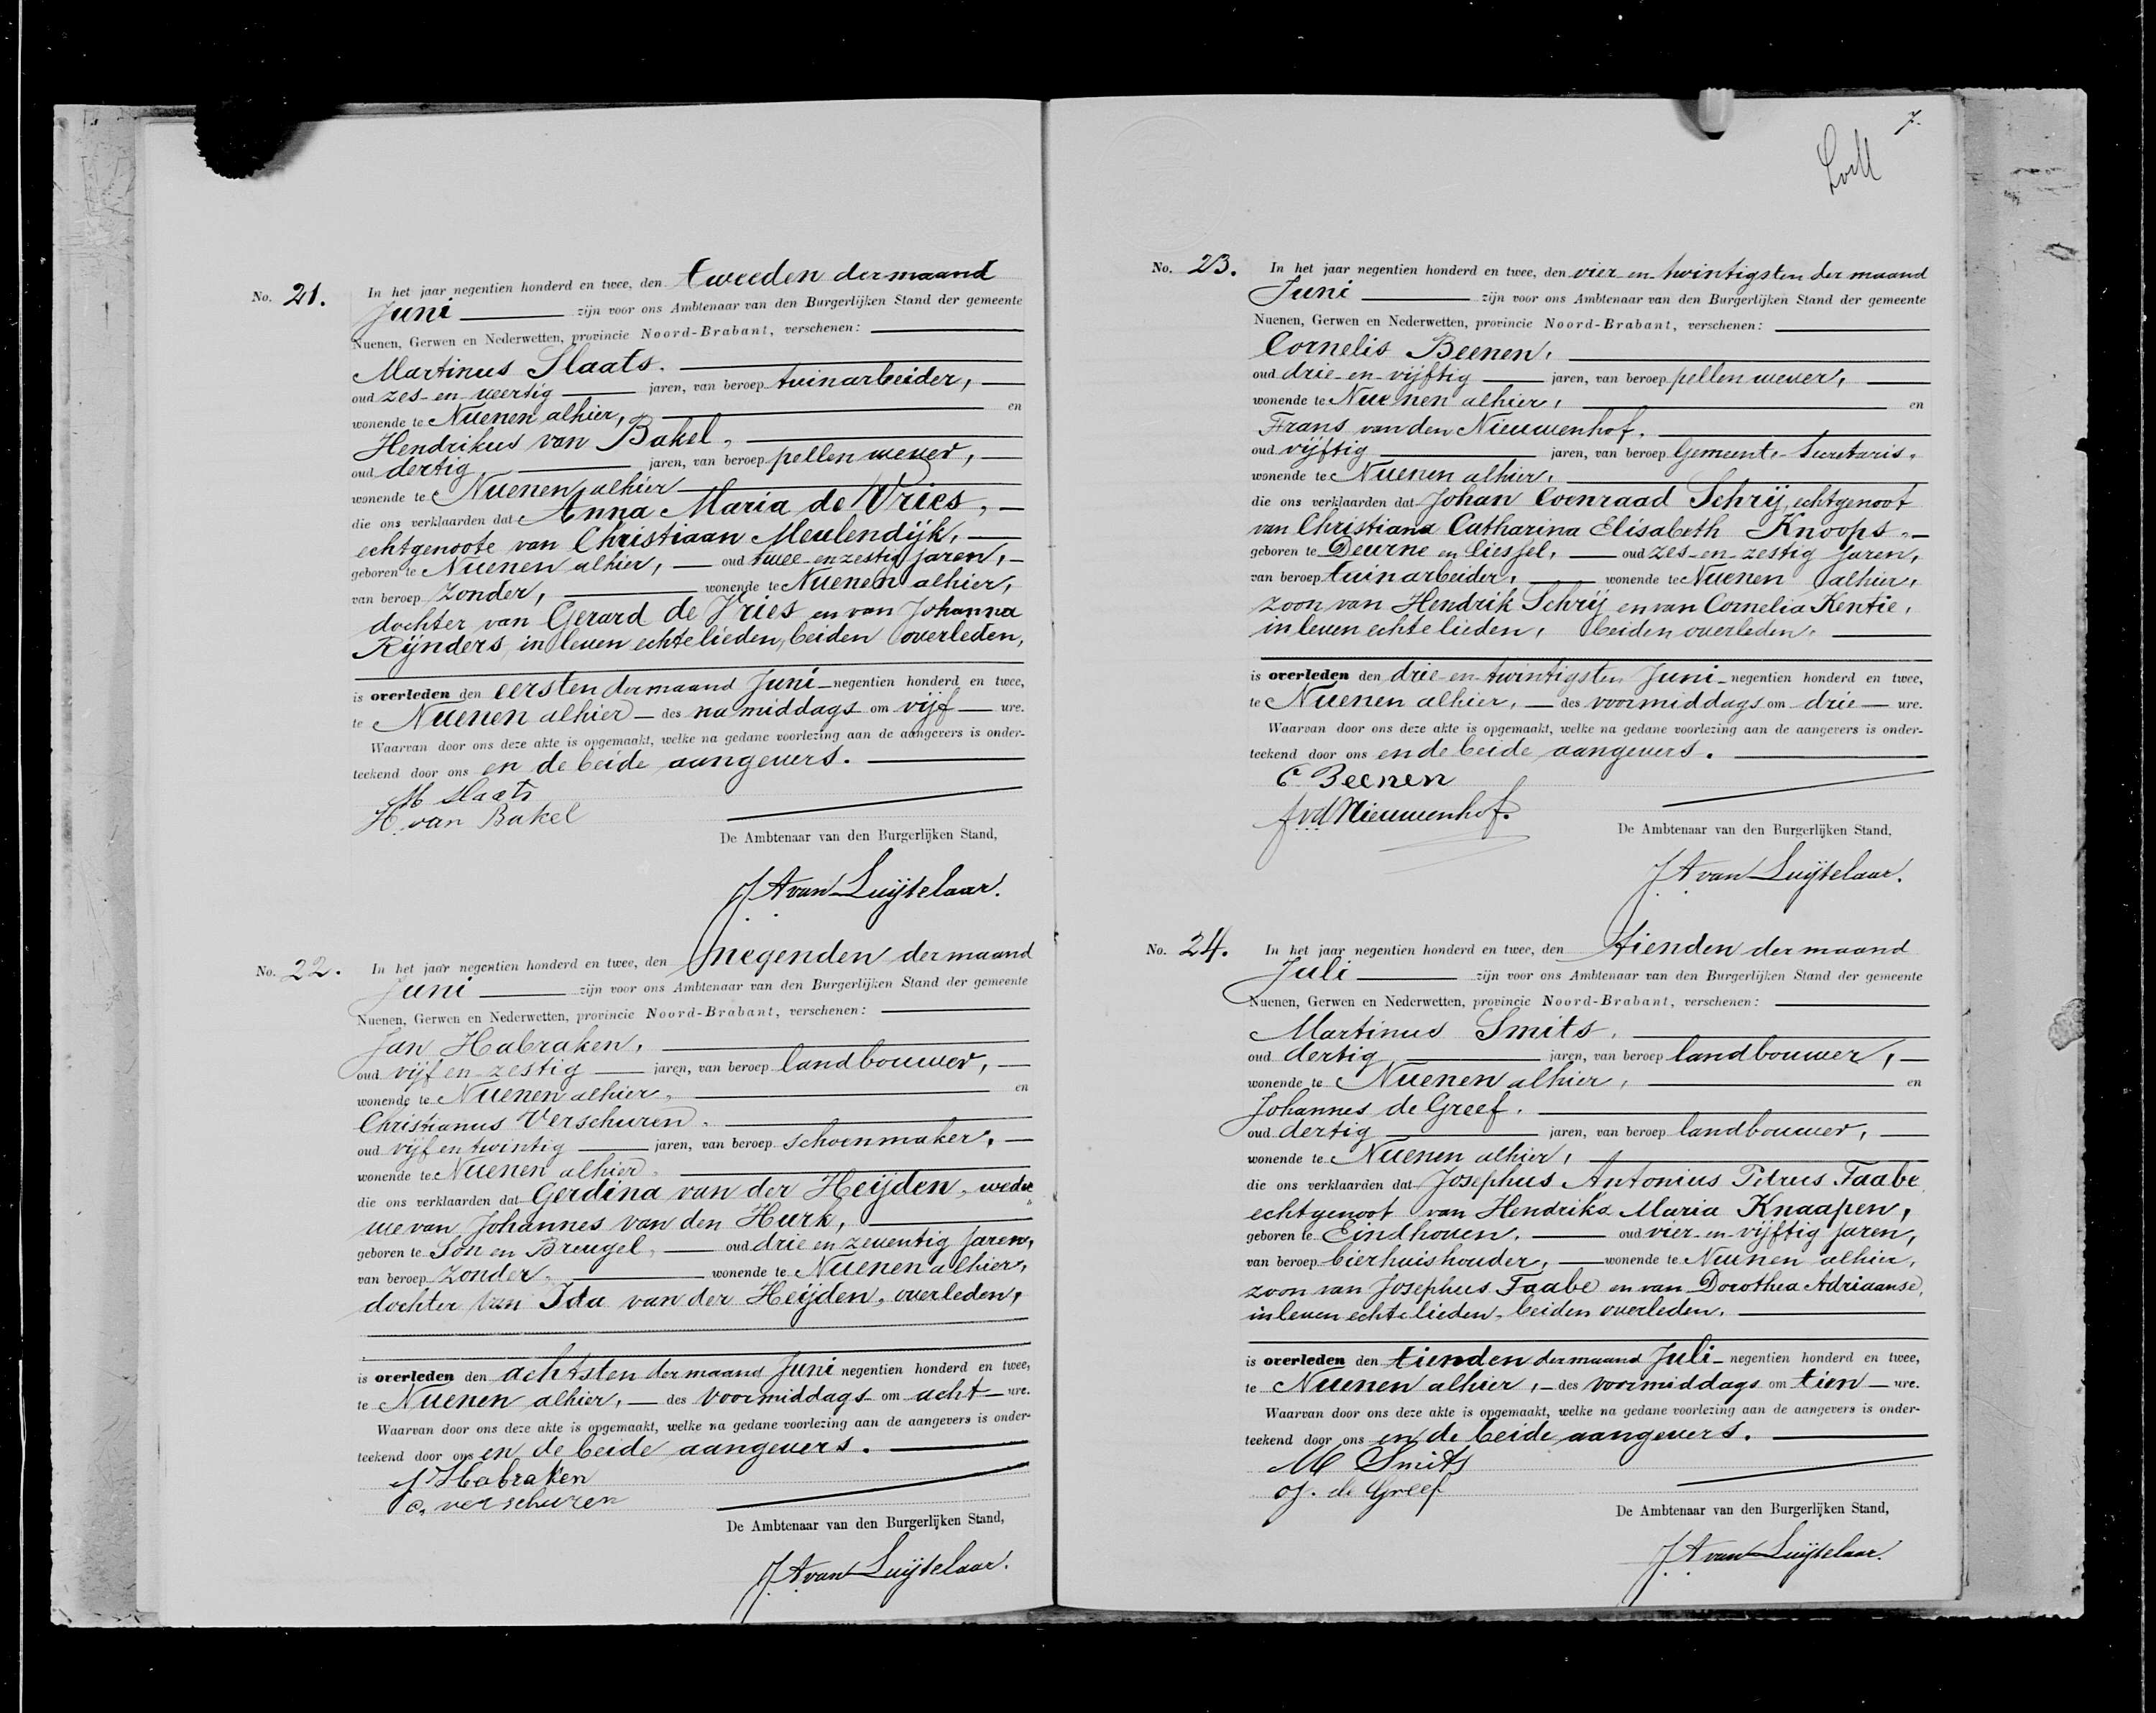 No. 21. In het jaar negentien honderd en twee, den tweeden der maand
Juni zijn voor ons Ambtenaar van den Burgerlijken Stand der gemeente
Nuenen, Gerwen en Nederwetten, provincie Noord-Brabant, verschenen:
Martinus Slaats.
oud zes-en-veertig jaren, van beroep tuinarbeider,
wonende te Nuenen alhier, en
Hendrikus van Bakel,
oud dertig, jaren, van beroep pellenwever,
wonende te Nuenen alhier
die ons verklaarden dat Anna Maria de Vries,
echtgenoote van Christiaan Meulendijk,
geboren te Nuenen alhier, oud twee-en zestig jaren,
van beroep zonder, wonende te Nuenen alhier,
dochter van Gerard de Vries en van Johanna
Rijnders, in leven echtelieden, beiden overleden,
is overleden den eersten der maand Juni negentien honderd en twee,
te Nuenen alhier des namiddags om vijf ure.
Waarvan door ons deze akte is opgemaakt, welke na gedane voorlezing aan de aangevers is onder-
teekend door ons en de beide aangevers.
M Slaats
H. van Bakel
De Ambtenaar van den Burgerlijken Stand,
J. A. van Luijtelaar.
No. 22. In het jaar negentien honderd en twee, den negenden der maand
Juni zijn voor ons Ambtenaar van den Burgerlijken Stand der gemeente
Nuenen, Gerwen en Nederwetten, provincie Noord-Brabant, verschenen:
Jan Habraken,
oud vijf en zestig jaren, van beroep landbouwer,
wonende te Nuenen alhier, en
Christianus Verschuren,
oud vijf en twintig jaren, van beroep schoenmaker,
wonende te Nuenen alhier,
die ons verklaarden dat Gerdina van der Heijden, wedu
we van Johannes van den Hurk,
geboren te Son en Breugel, oud drie en zeventig jaren,
van beroep zonder, wonende te Nuenen alhier,
dochter van Ida van der Heijden, overleden,
is overleden den achtsten der maand Juni negentien honderd en twee,
te Nuenen alhier, des voormiddags om acht ure.
Waarvan door ons deze akte is opgemaakt, welke na gedane voorlezing aan de aangevers is onder-
teekend door ons en de beide aangevers.
J Habraken
C. verschuren
De Ambtenaar van den Burgerlijken Stand,
J. A. van Luijtelaar.
7.
No. 23. In het jaar negentien honderd en twee, den vier en twintigsten der maand
Juni zijn voor ons Ambtenaar van den Burgerlijken Stand der gemeente
Nuenen, Gerwen en Nederwetten, provincie Noord-Brabant, verschenen:
Cornelis Beenen,
oud drie-en-vijftig jaren, van beroep pellenwever,
wonende te Nuenen alhier, en
Frans van den Nieuwenhof,
oud vijftig jaren, van beroep Gemeente-Secretaris,
wonende te Nuenen alhier,
die ons verklaarden dat Johan Coenraad Schrij, echtgenoot
van Christiana Catharina Elisabeth Knoops,
geboren te Deurne en Liessel, oud zes-en-zestig jaren,
van beroep tuinarbeider, wonende te Nuenen alhier,
zoon van Hendrik Schrij en van Cornelia Kentie,
in leven echtelieden, beiden overleden,
is overleden den drie-en-twintigsten Juni negentien honderd en twee,
te Nuenen alhier, des voormiddags om drie ure.
Waarvan door ons deze akte is opgemaakt, welke na gedane voorlezing aan de aangevers is onder-
teekend door ons en de beide aangevers.
C. Beenen
f v d Nieuwenhof.
De Ambtenaar van den Burgerlijken Stand,
J. A. van Luijtelaar.
No. 24. In het jaar negentien honderd en twee, den tienden der maand
Juli zijn voor ons Ambtenaar van den Burgerlijken Stand der gemeente
Nuenen, Gerwen en Nederwetten, provincie Noord-Brabant, verschenen:
Martinus Smits,
oud dertig jaren, van beroep landbouwer,
wonende te Nuenen alhier, en
Johannes de Greef,
oud dertig jaren, van beroep landbouwer,
wonende te Nuenen alhier,
die ons verklaarden dat Josephus Antonius Petrus Faabe
echtgenoot van Hendrika Maria Knaapen,
geboren te Eindhoven, oud vier-en-vijftig jaren,
van beroep bierhuishouder, wonende te Nuenen alhier,
zoon van Josephus Faabe en van Dorothea Adriaanse,
in leven echtelieden, beiden overleden,
is overleden den tienden der maand Juli negentien honderd en twee,
te Nuenen alhier, des voormiddags om tien ure.
Waarvan door ons deze akte is opgemaakt, welke na gedane voorlezing aan de aangevers is onder-
teekend door ons en de beide aangevers.
M Smits
J. de Greef
De Ambtenaar van den Burgerlijken Stand,
J. A. van Luijtelaar.